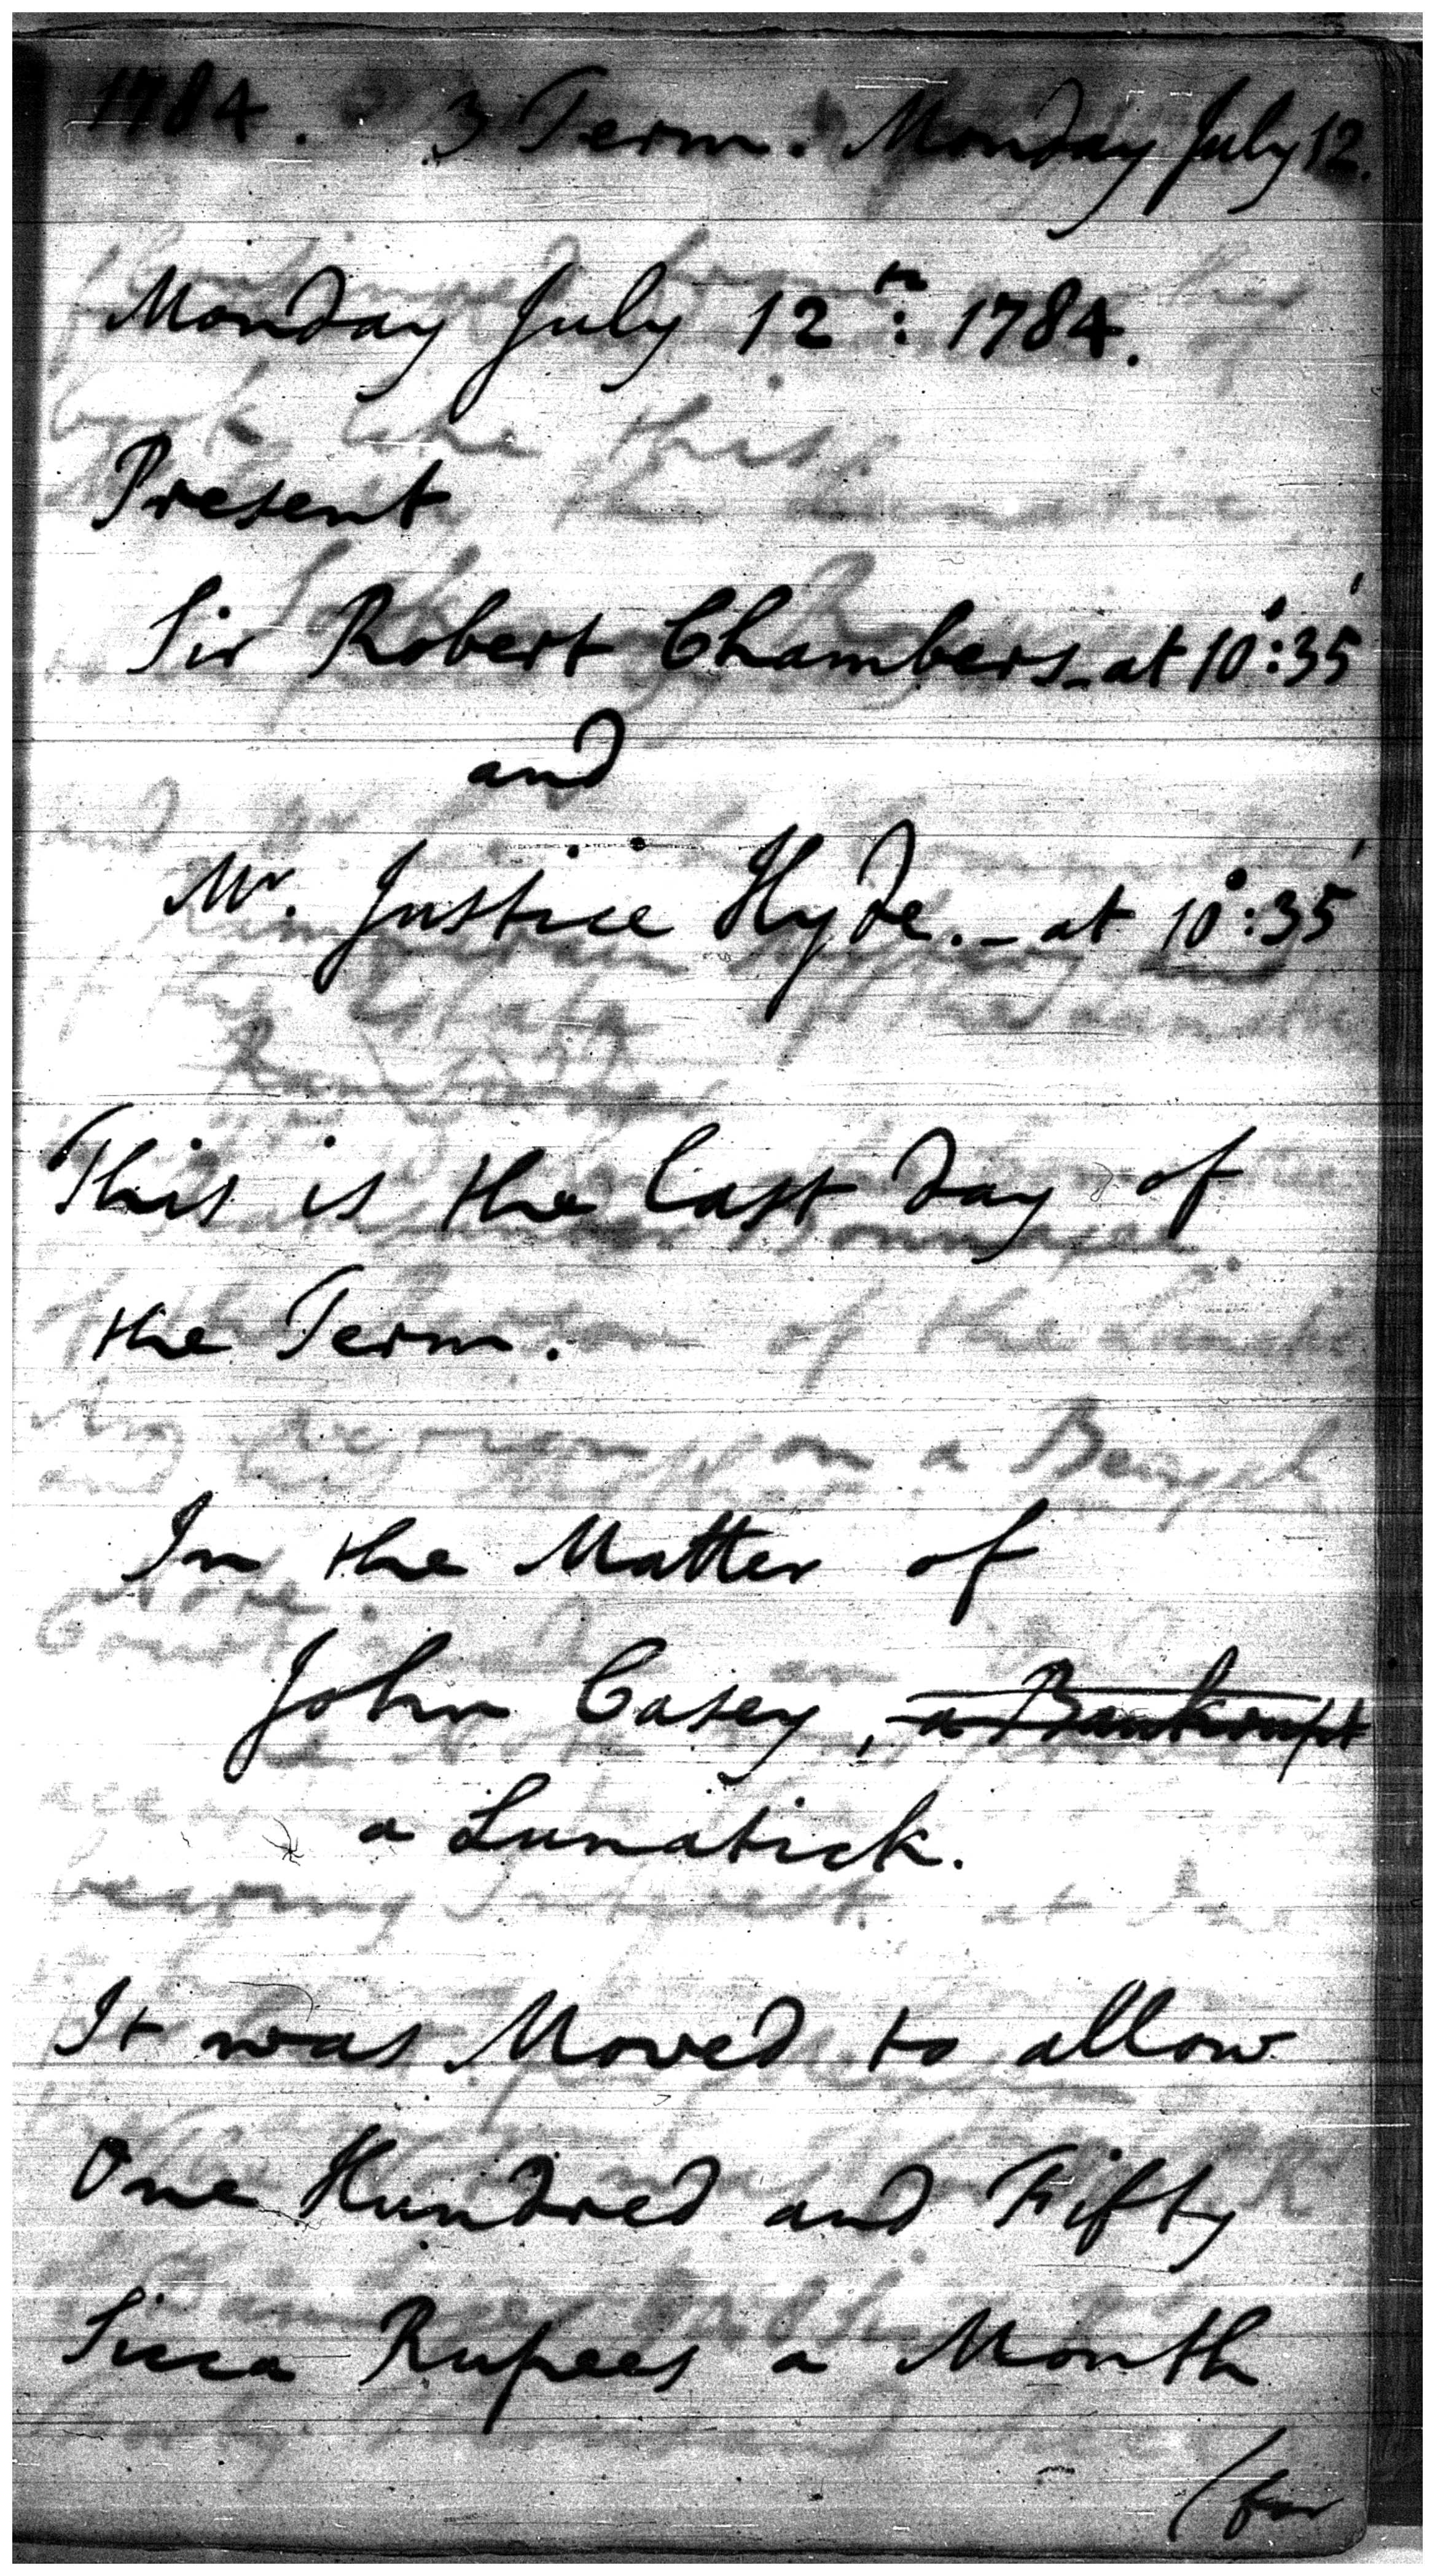 1784. 3 Term. Monday July 12.
Monday July 12th: 1784.
Present
Sir Robert Chambers_at 10°:35'
and
Mr. Justice Hyde._at 10°:35'
This is the last day of
the Term.
In the Matter of
John Casey, a Bankrupt
a Lunatick.
It was Moved to allow
One Hundred and Fifty
Sicca Rupees a Month
(for